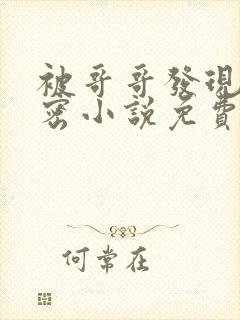 被哥哥發現
密小說免費
何常在